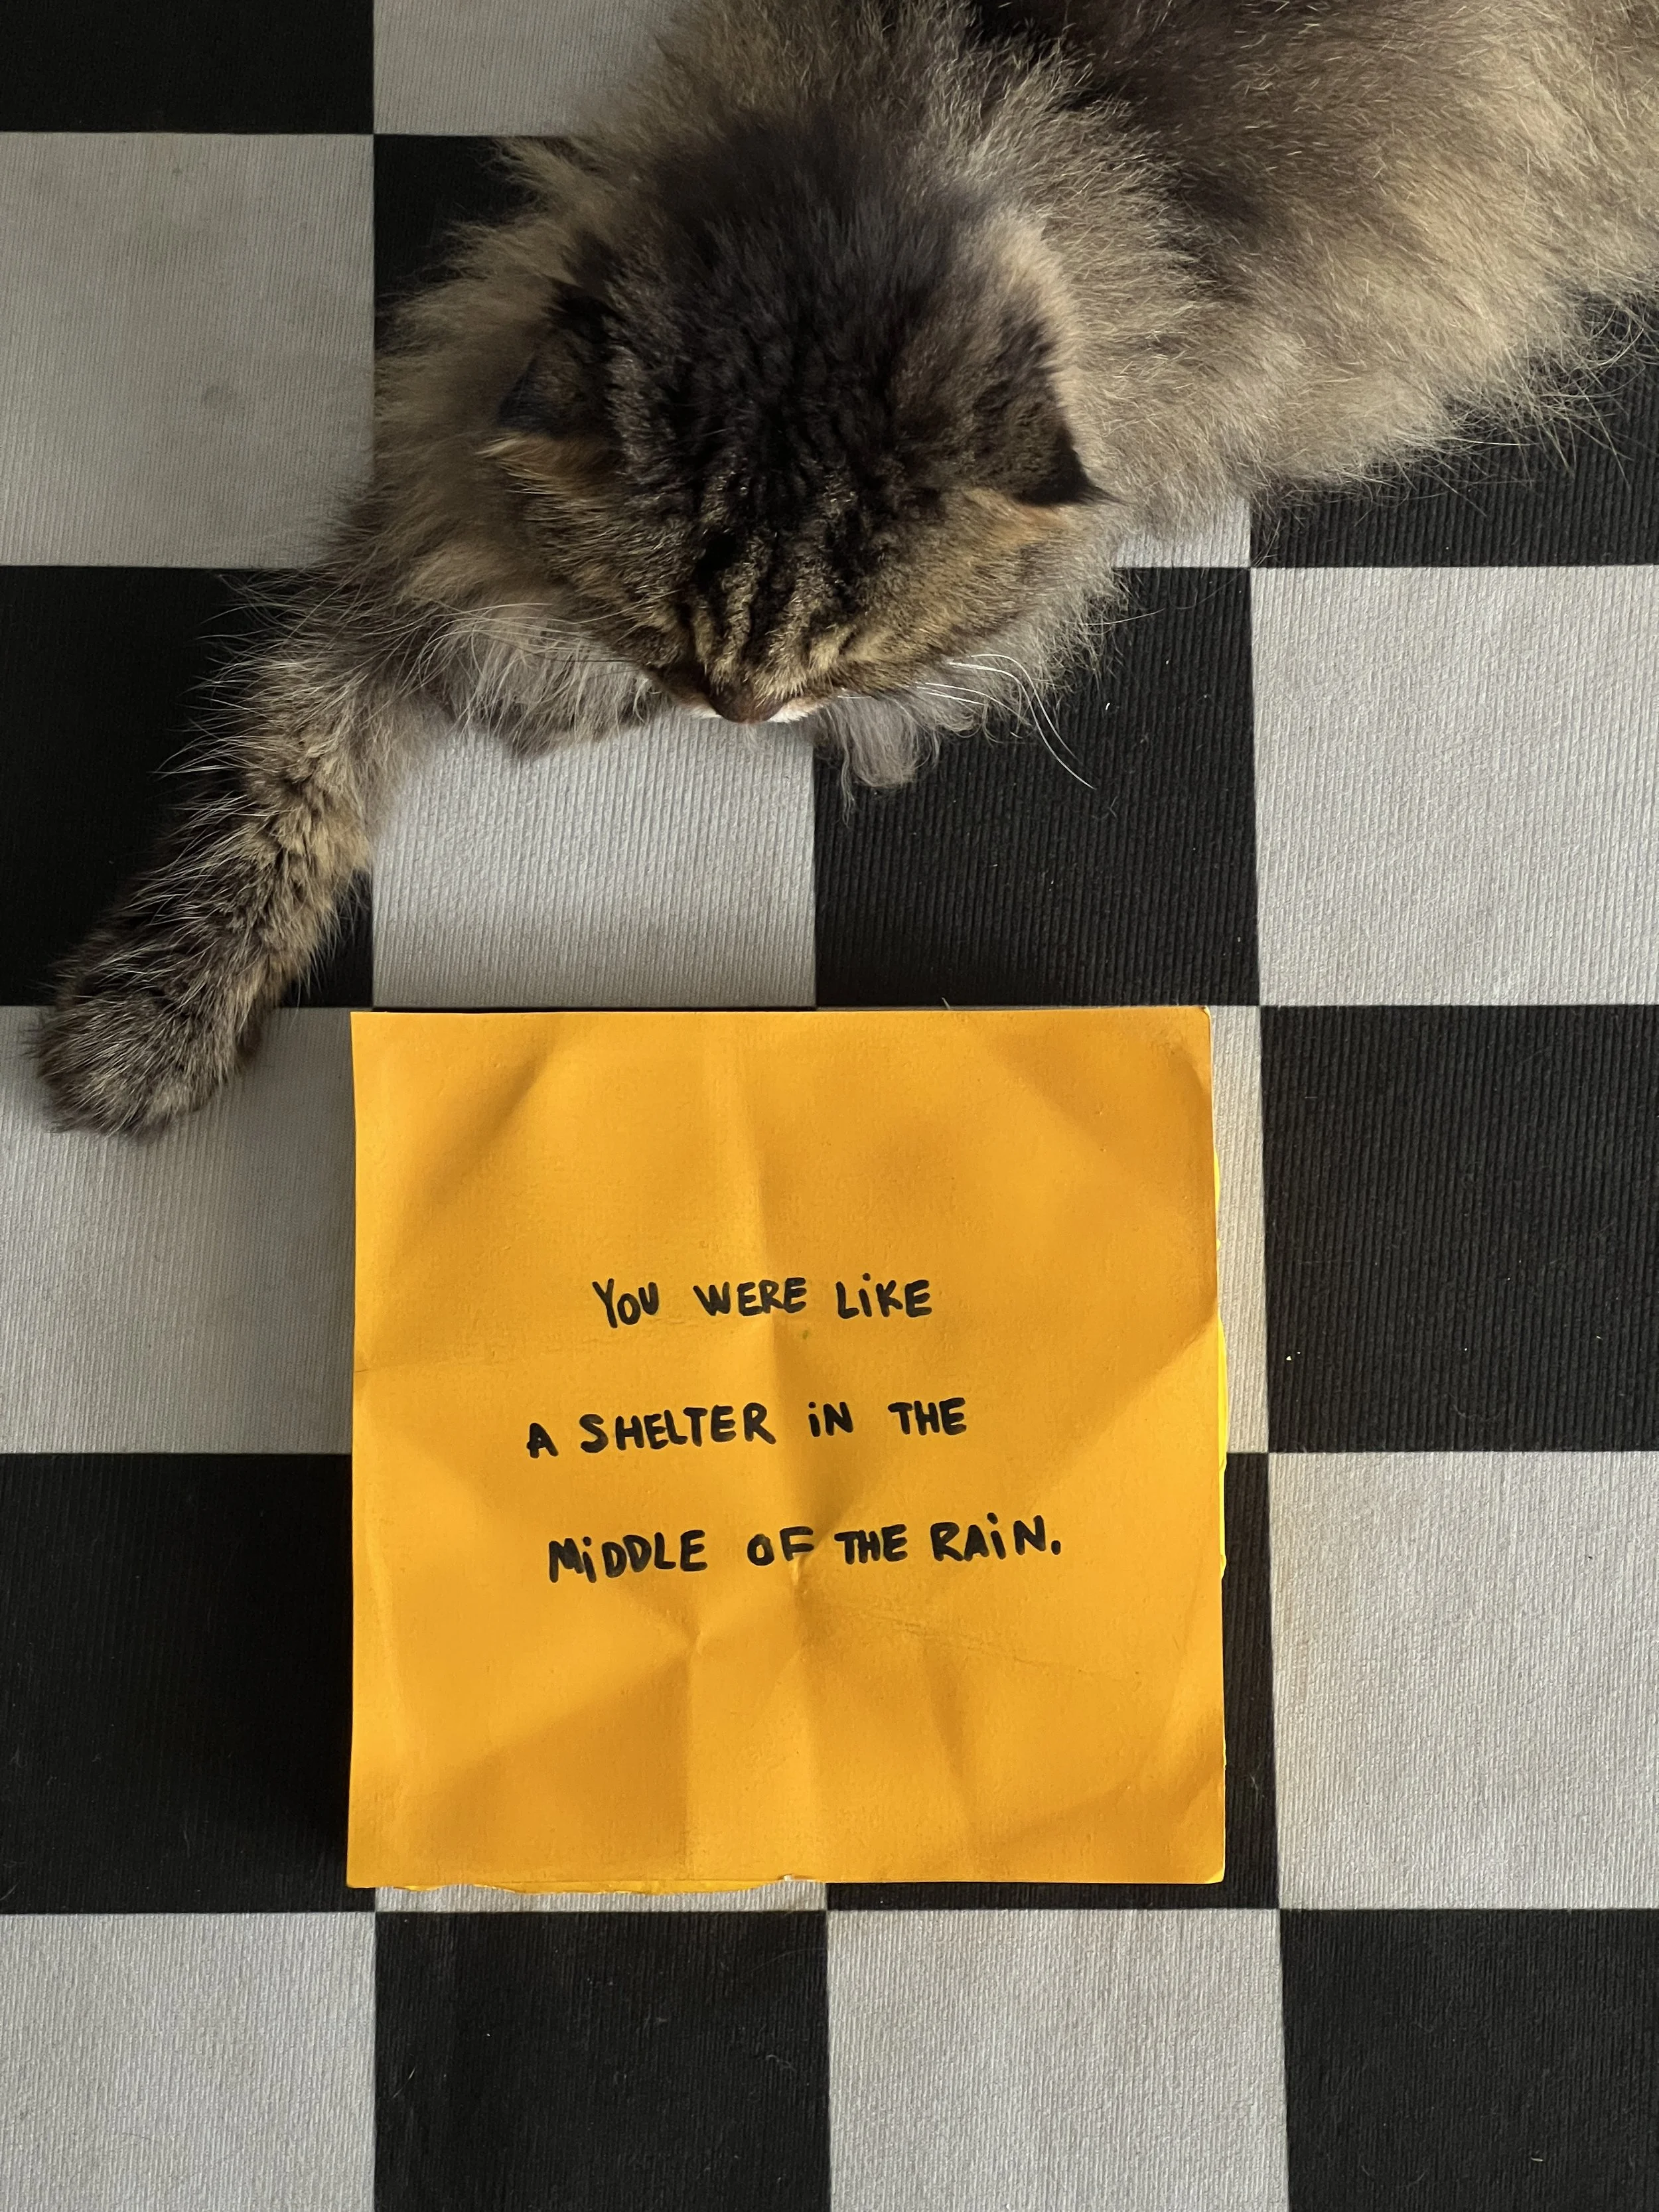 YOU WERE LiKE
A SHELTER iN THE
MiDDLE OF THE RAiN.